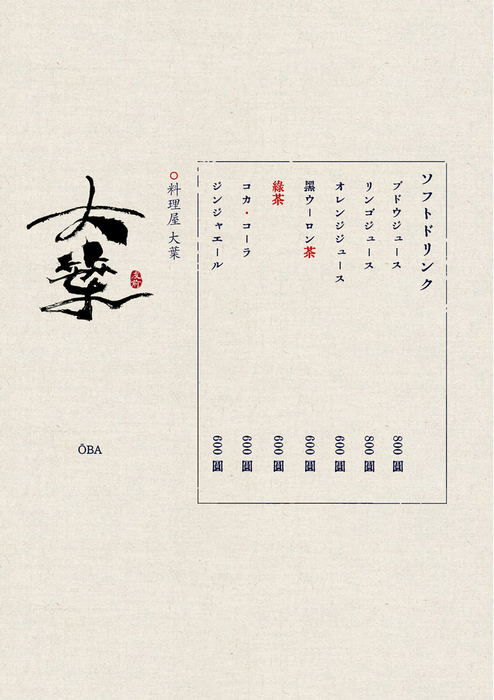 ソフトドリンク
ブドウジュース 800 圓
リンゴジュース 800 圓
オレンジジュース 600 圓
黒ウーロン茶 600 圓
綠茶 600 圓
コカ・コーラ 600 圓
ジンジャエール 600 圓
料理屋 大葉
大葉
ŌBA